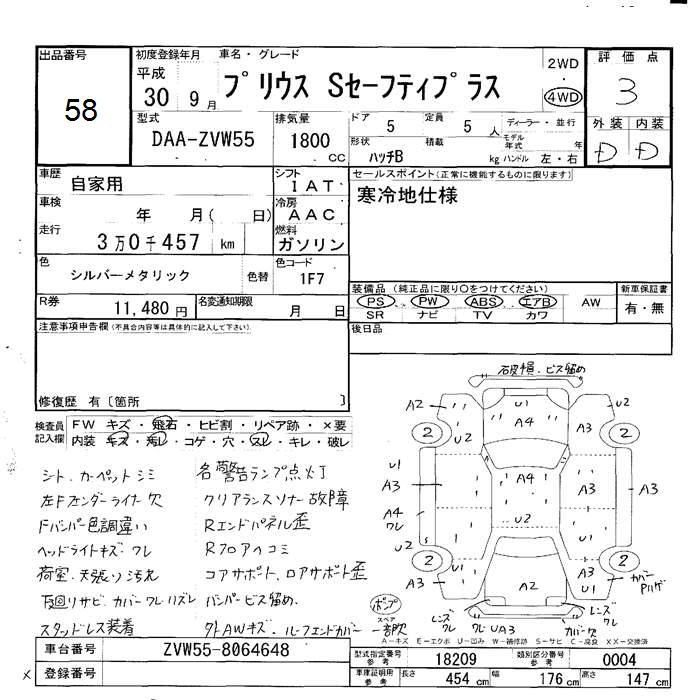 出品番号
58
初度登録年月
平成
30 9月
車名・グレード
プリウス Sセーフティプラス
2WD
4WD
評価点
3
外装 内装
D D
型式
DAA-ZVW55
排気量
1800
CC
ドア 5 定員 5人
ディーラー・並行
形状
ハッチB
積載 kg
モデル年式 年
ハンドル 左・右
車歴
自家用
シフト
IAT
セールスポイント(正常に機能するものに限ります)
寒冷地仕様
車検
年 月( 日)
冷房
AAC
走行
3万0千457 km
燃料
ガソリン
色
シルバーメタリック
色替
色コード
1F7
装備品(純正品に限り○をつけてください)
PS PW ABS エアB AW
SR ナビ TV カワ
新車保証書
有・無
R券
11,480円
名変通知期限
月 日
後日品
注意事項申告欄(不具合内容等は具体的に記入して下さい)
修復歴 有〔箇所 〕
検査員記入欄
FW キズ・飛石・ヒビ割・リペア跡・×要
内装 キズ・汚レ・コゲ・穴・スレ・キレ・破レ
シート、カーペットシミ
左Fフェンダーライナー欠
Fバンパー色調違い
ヘッドライトキズ・ワレ
荷室・天張り汚れ
下回りサビ・カバーワレ・ハズレ
スタッドレス装着
各警告ランプ点灯
クリアランスソナー故障
Rエンドパネル歪
Rフロアヘコミ
コアサポート、ロアサポート歪
バンパービス留め
外AWキズ・ルーフエンドカバー一部欠
破損・ビス留め
A2
U2
U1
A4
A3
U2
2
2
U1
A3
A4
ワレ
U2
A4
U2
A3
A3
2
2
A3
A2
A3
U1
カバー
ポンプ
スペア
レンズ
ワレ
ワレUA3
レンズ
ワレ
カバー欠
A-キズ E-エクボ U-凹み W-補修跡 S-サビ C-腐食 XX-交換済
車台番号
ZVW55-8064648
登録番号
型式指定番号
参考
18209
類別区分番号
参考
0004
車庫証明用
参考
長さ 454 cm
幅 176 cm
高さ 147 cm